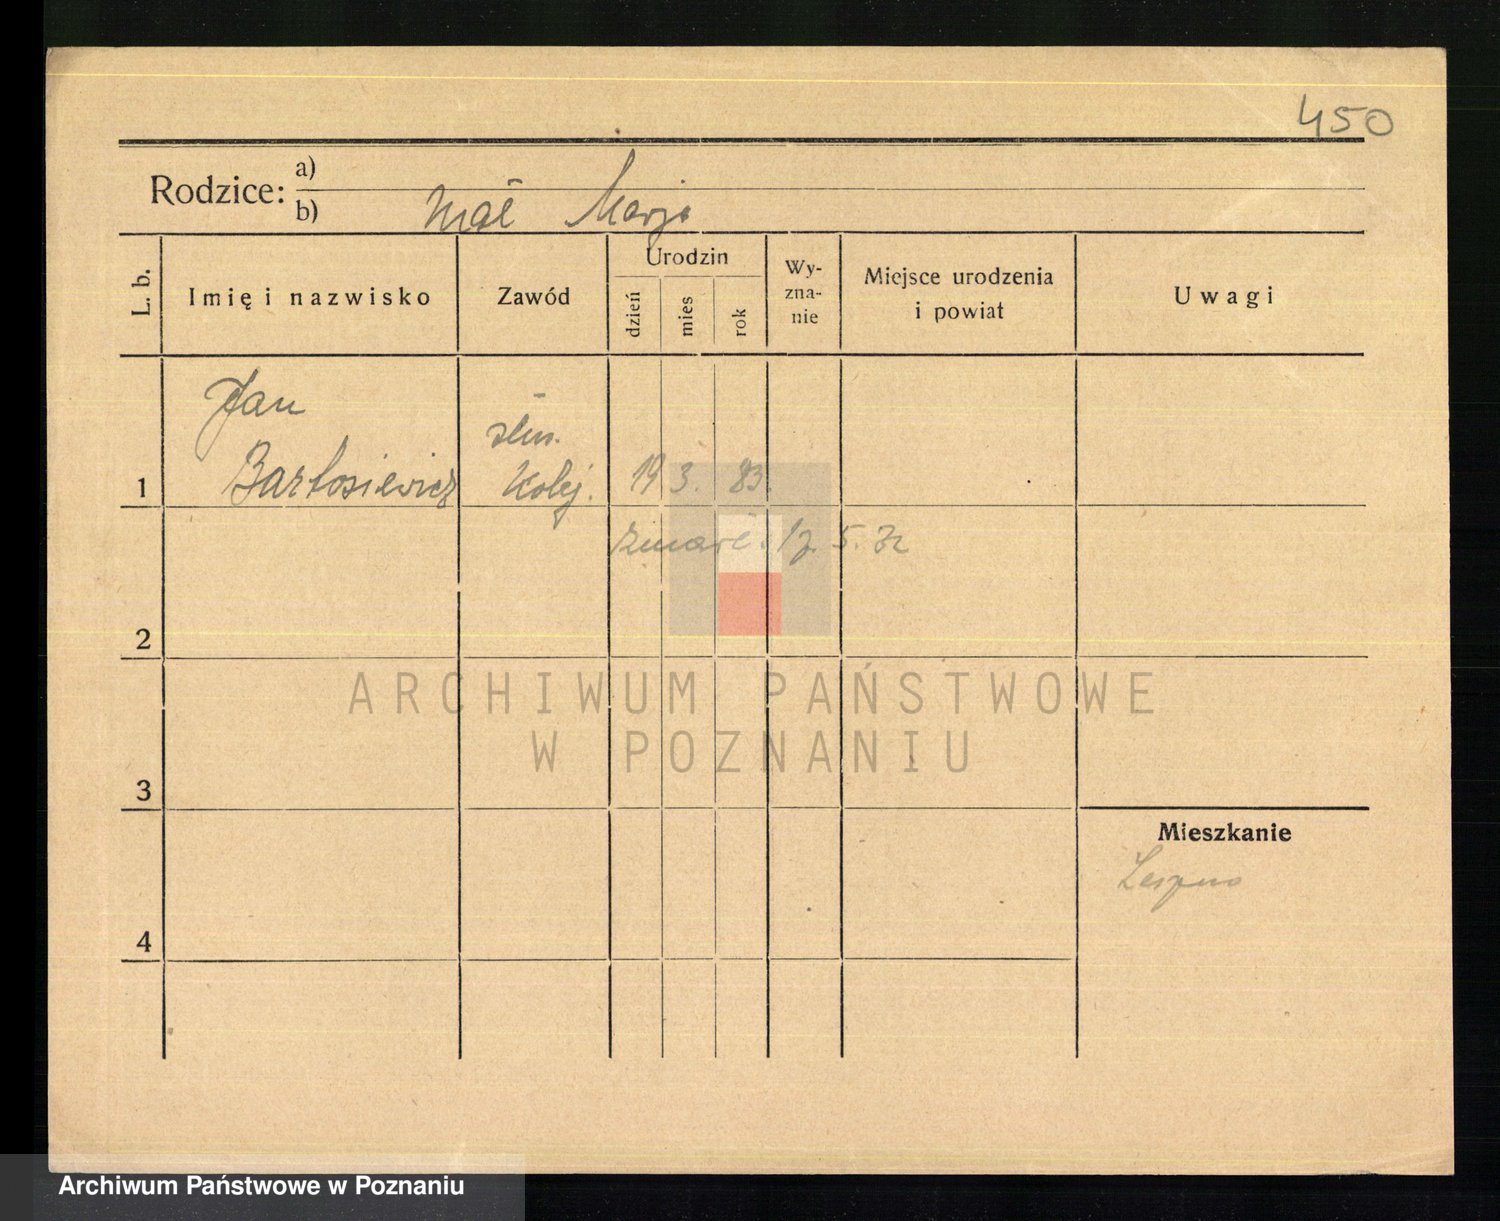 450
Rodzice: a)
b) Marja
L. b. Imię i nazwisko Zawód Urodzin dzień mies rok Wy-zna-nie Miejsce urodzenia i powiat Uwagi
Jan
1 Bartosiewicz Kolej. 19 3. 83.
zmarł. 17. 5. 32
2
ARCHIWUM PAŃSTWOWE
W POZNANIU
3
Mieszkanie
4
Archiwum Państwowe w Poznaniu